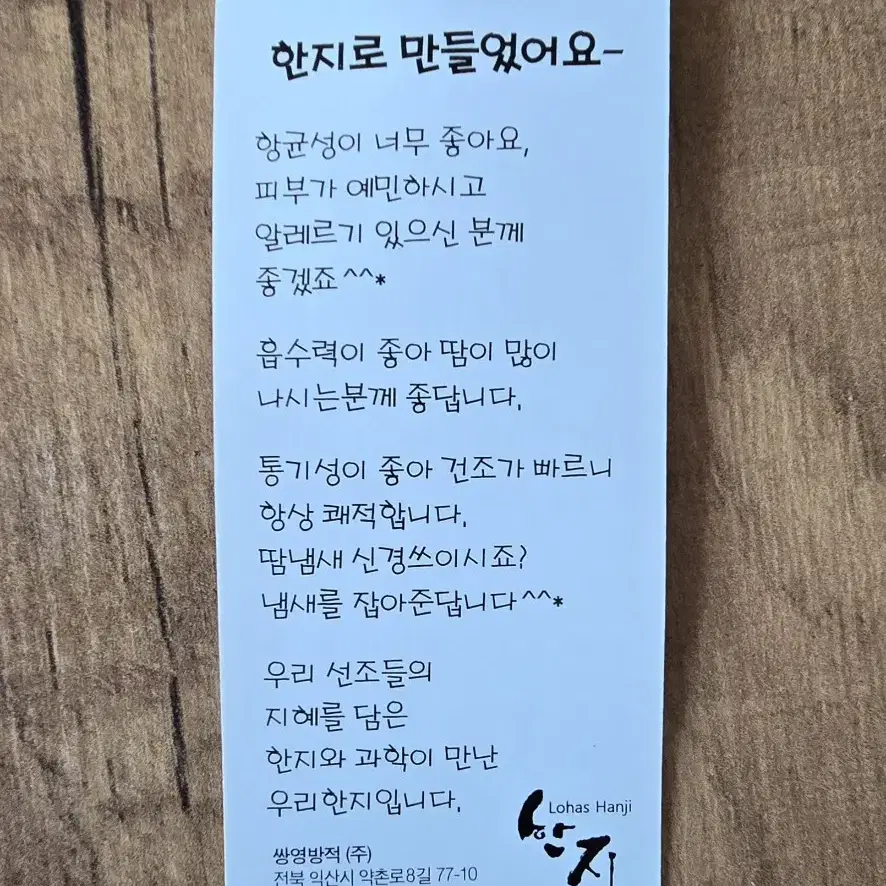 한지로 만들었어요~
항균성이 너무 좋아요,
피부가 예민하시고
알레르기 있으신 분께
좋겠죠^^*
흡수력이 좋아 땀이 많이
나시는분께 좋답니다.
통기성이 좋아 건조가 빠르니
항상 쾌적합니다.
땀냄새 신경쓰이시죠?
냄새를 잡아준답니다^^*
우리 선조들의
지혜를 담은
한지와 과학이 만난
우리한지입니다.
Lohas Hanji
한지
쌍영방적 (주)
전북 익산시 약촌로8길 77-10